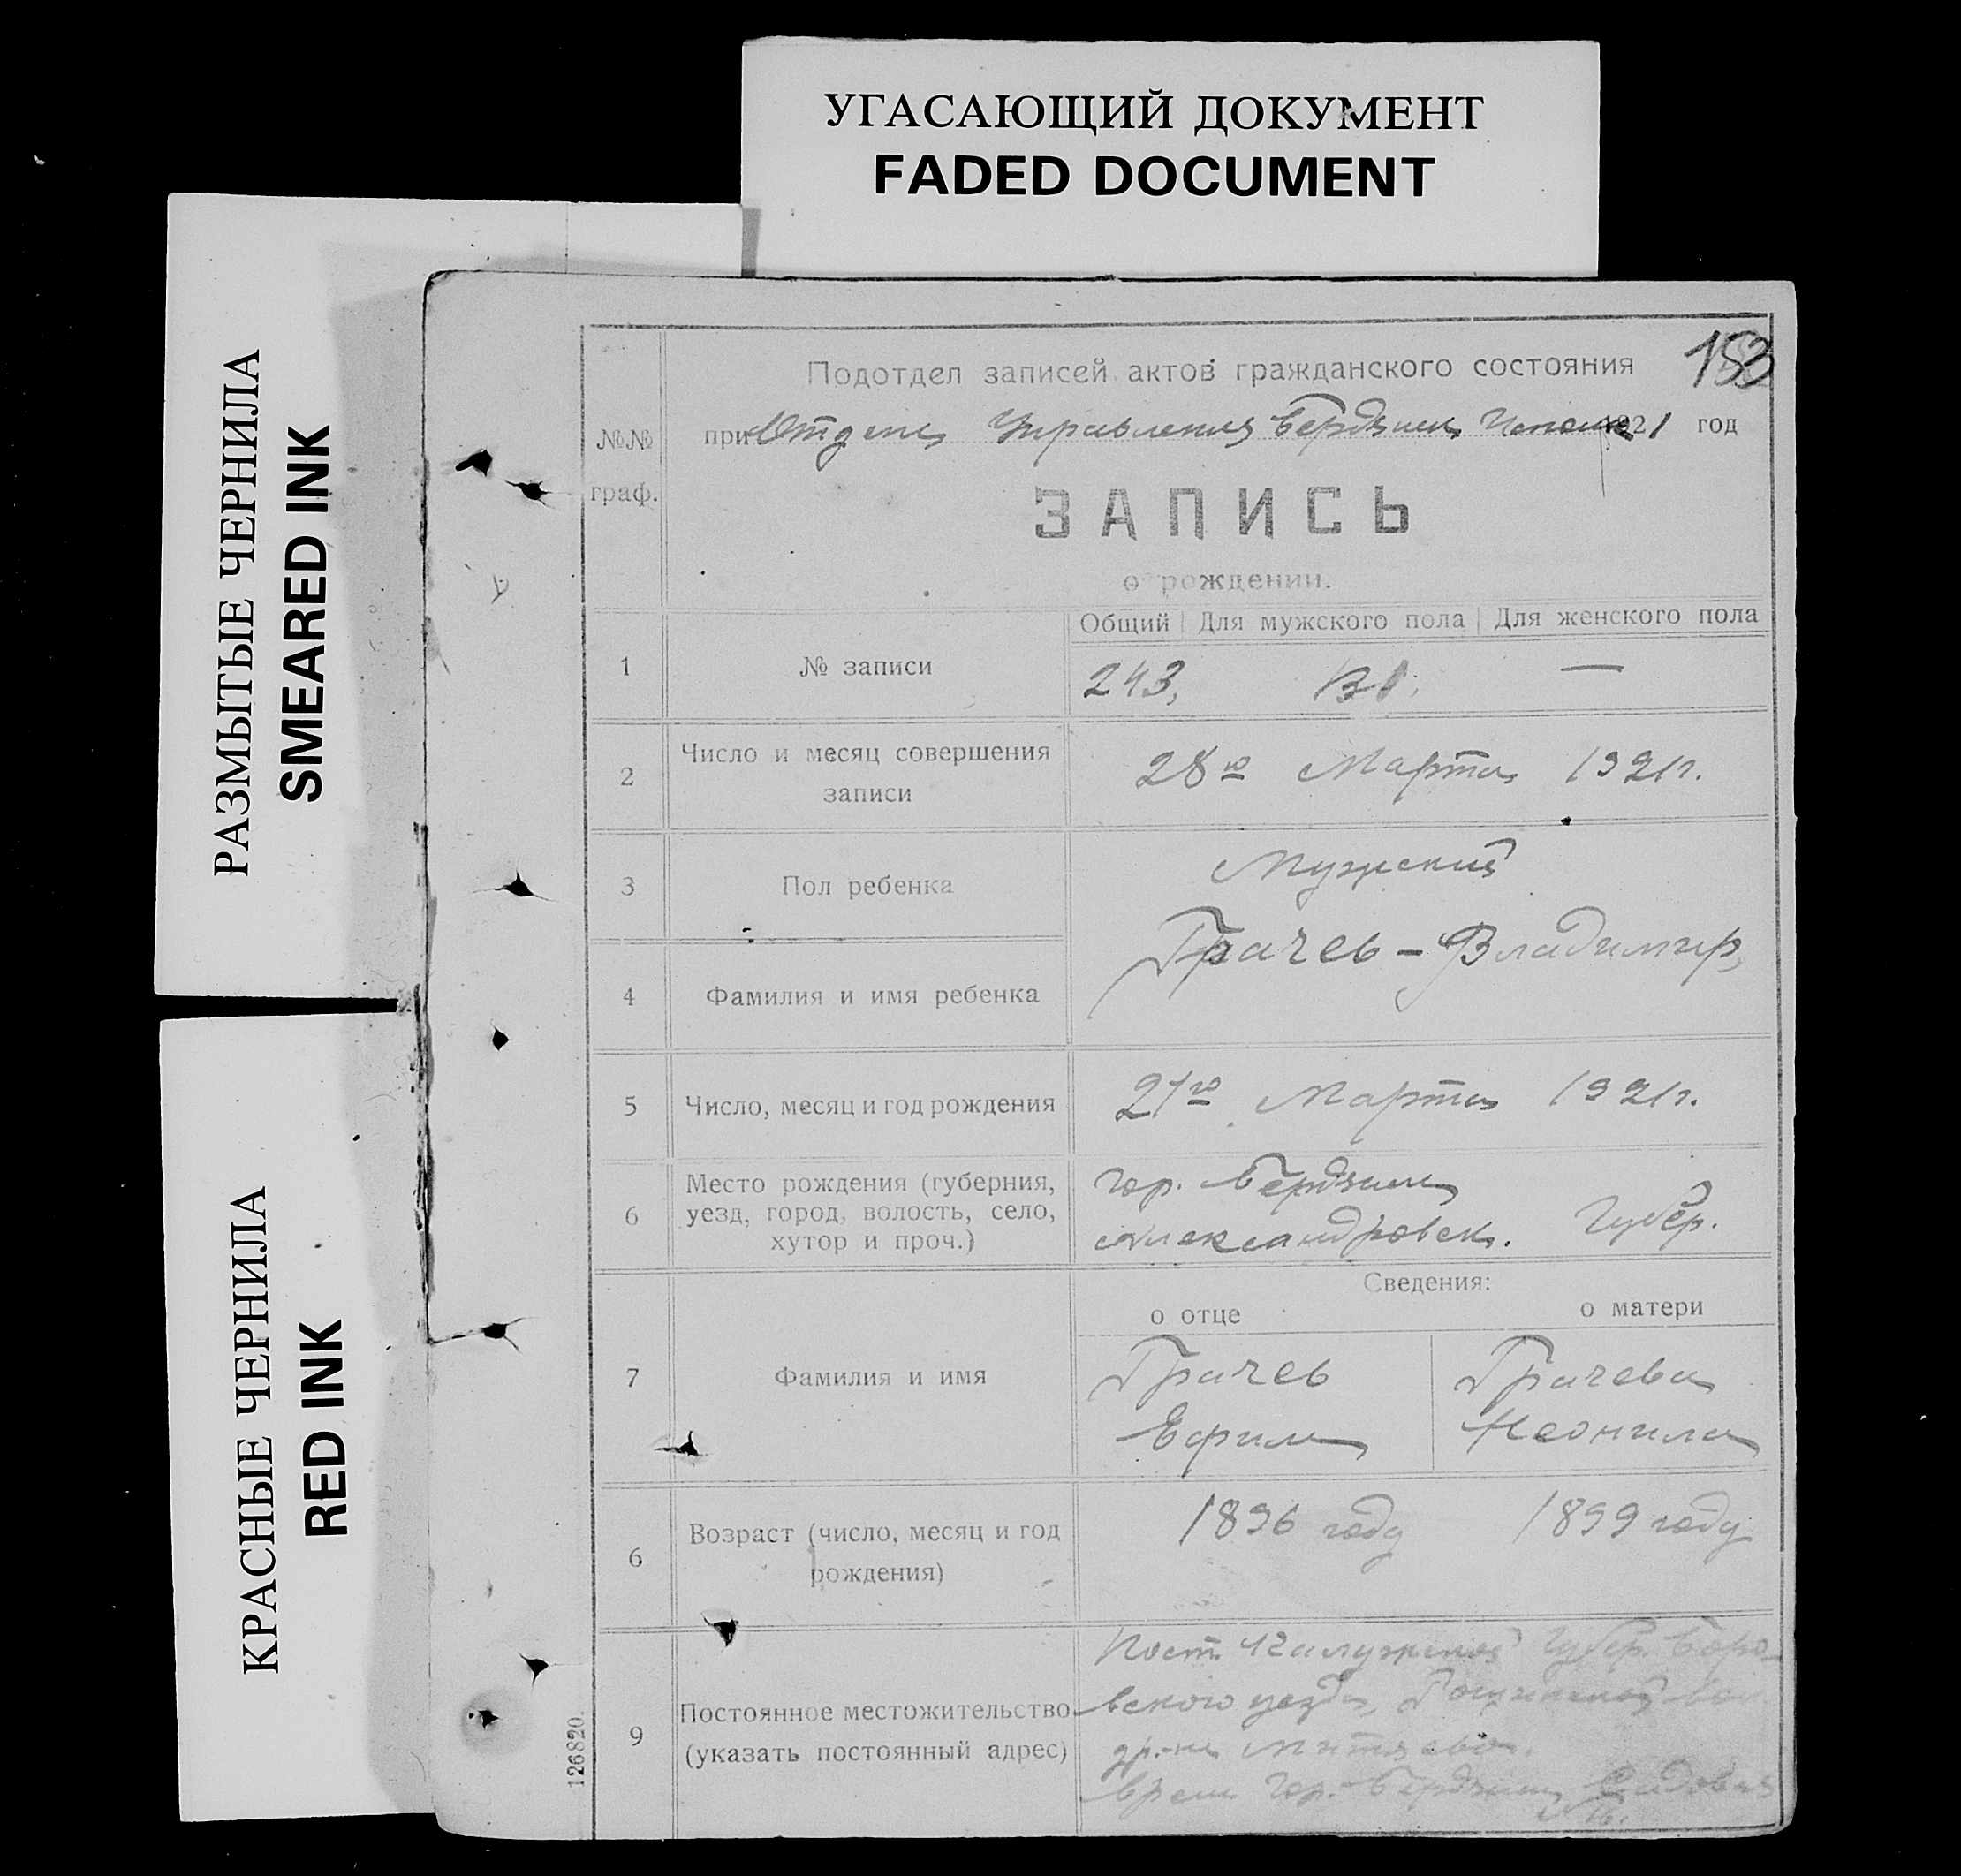 УГАСАЮЩИЙ ДОКУМЕНТ
FADED DOCUMENT
РАЗМЫТЫЕ ЧЕРНИЛА
SMEARED INK
КРАСНЫЕ ЧЕРНИЛА
RED INK
153
Подотдел записей актов гражданского состояния
при Отделе Управления Бердянск 1921 год
№№
граф.
ЗАПИСЬ
о рождении.
Общий Для мужского пола Для женского пола
1 № записи 243, —
2 Число и месяц совершения
записи
28го Марта 1921г.
3 Пол ребенка Мужский
4 Фамилия и имя ребенка Грачев - Владимир
5 Число, месяц и год рождения 21го Марта 1921г.
6 Место рождения (губерния,
уезд, город, волость, село,
хутор и проч.)
гор. Бердянск
Александровск. Губер.
Сведения:
о отце о матери
7 Фамилия и имя
Грачев Грачева
Ефим Неонила
6 Возраст (число, месяц и год
рождения)
1896 году 1899 году
9 Постоянное местожительство
(указать постоянный адрес)
Пост. Калужской Губер. Боро-
вского уезда,
др-ня Митяева.
Врем. гор. Бердянск Садовая
126820.